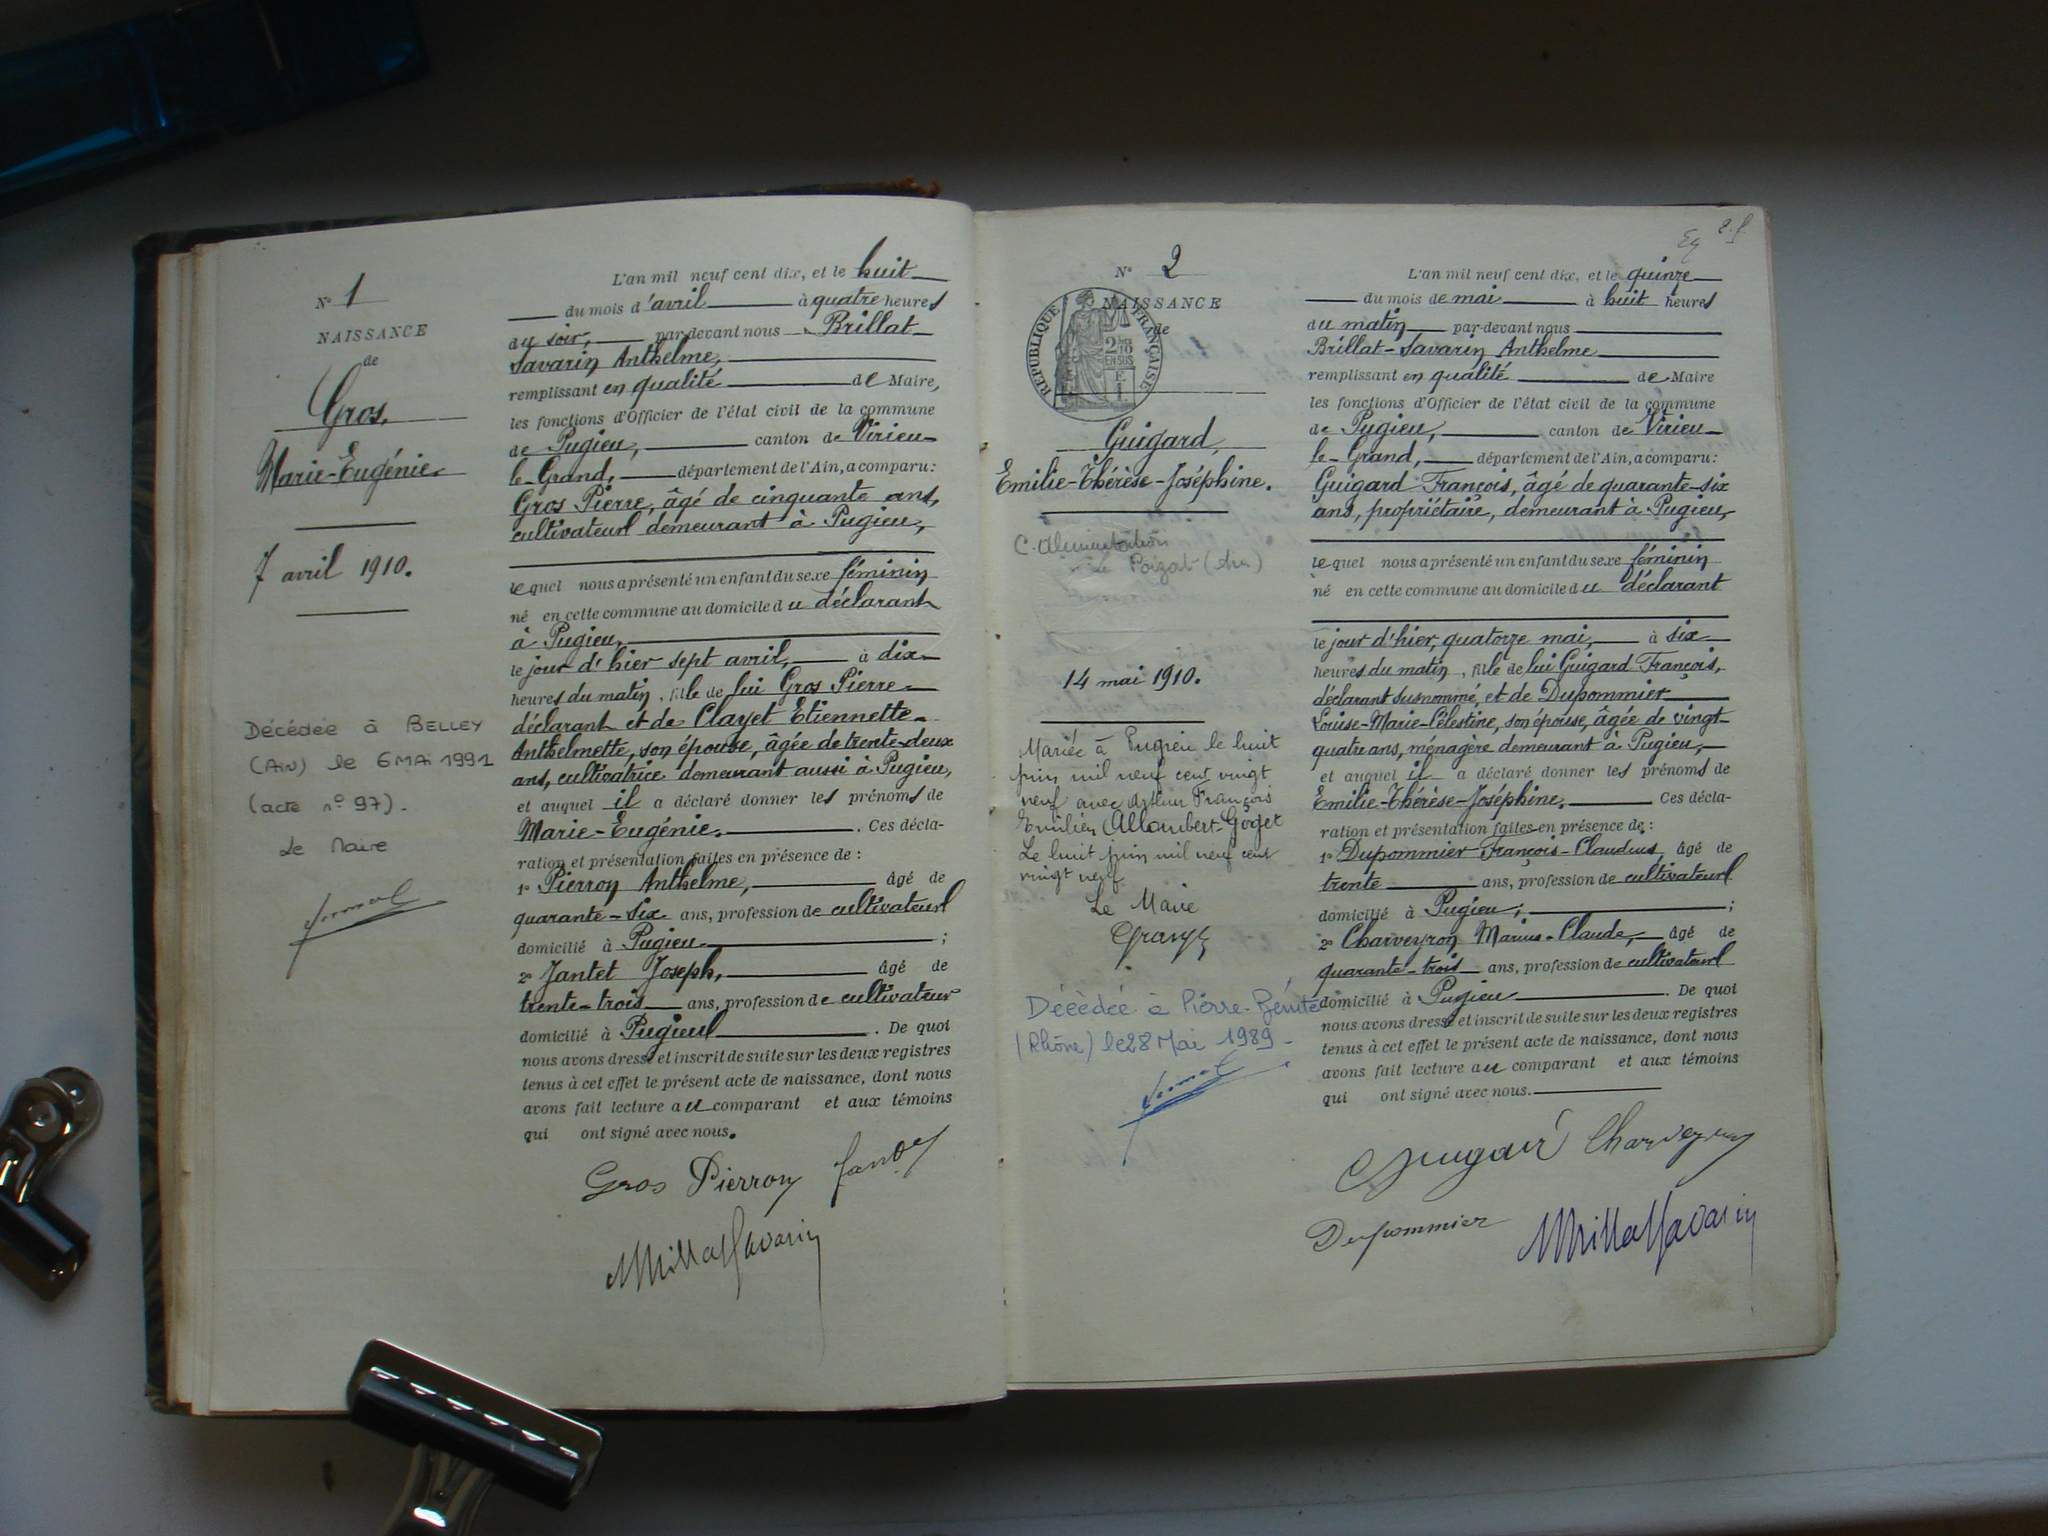 N° 1
NAISSANCE
de
Gros,
Marie-Eugénie.
7 avril 1910.
Décédée à BELLEY
(Ain) le 6 MAI 1991
(acte n° 97).
Le Maire
L'an mil neuf cent dix, et le huit
du mois d'avril à quatre heures
du soir, par-devant nous Brillat
Savarin Anthelme,
remplissant en qualité de Maire,
les fonctions d'Officier de l'état civil de la commune
de Pugieu, canton de Virieu-
le-Grand, département de l'Ain, a comparu:
Gros Pierre, âgé de cinquante ans,
cultivateur demeurant à Pugieu,
lequel nous a présenté un enfant du sexe féminin
né en cette commune au domicile du déclarant
à Pugieu,
le jour d'hier sept avril, à dix
heures du matin, fille de lui Gros Pierre
déclarant et de Clayet Etiennette-
Anthelmette, son épouse, âgée de trente-deux
ans, cultivatrice demeurant aussi à Pugieu,
et auquel il a déclaré donner les prénoms de
Marie-Eugénie. Ces décla-
ration et présentation faites en présence de :
1° Pierron Anthelme, âgé de
quarante-six ans, profession de cultivateur
domicilié à Pugieu ;
2° Jantet Joseph, âgé de
trente-trois ans, profession de cultivateur
domicilié à Pugieu. De quoi
nous avons dressé et inscrit de suite sur les deux registres
tenus à cet effet le présent acte de naissance, dont nous
avons fait lecture au comparant et aux témoins
qui ont signé avec nous.
Gros Pierron Jantet
Brillat Savarin
N° 2
NAISSANCE
de
REPUBLIQUE FRANÇAISE
2/10
EN SUS
Guigard,
Emilie-Thérèse-Joséphine.
C. Alimentation
Le Poizat (Ain)
14 mai 1910.
Mariée à Pugieu le huit
juin mil neuf cent vingt
neuf avec Arthur François
Emilien Allombert-Goget
Le huit juin mil neuf cent
vingt neuf
Le Maire
Décèdée à Pierre-Bénite
(Rhône) le 28 Mai 1989
2.f.
L'an mil neuf cent dix, et le quinze
du mois de mai à huit heures
du matin par-devant nous
Brillat-Savarin Anthelme
remplissant en qualité de Maire
les fonctions d'Officier de l'état civil de la commune
de Pugieu, canton de Virieu-
le-Grand, département de l'Ain, a comparu:
Guigard François, âgé de quarante-six
ans, propriétaire, demeurant à Pugieu,
lequel nous a présenté un enfant du sexe féminin
né en cette commune au domicile du déclarant
le jour d'hier, quatorze mai, à six
heures du matin, fille de lui Guigard François,
déclarant susnommé, et de Dupommier
Louise-Marie-Célestine, son épouse, âgée de vingt-
quatre ans, ménagère demeurant à Pugieu,
et auquel il a déclaré donner les prénoms de
Emilie-Thérèse-Joséphine. Ces décla-
ration et présentation faites en présence de :
1° Dupommier François-Claudius, âgé de
trente ans, profession de cultivateur
domicilié à Pugieu; ;
2° Charveyron Marius-Claude, âgé de
quarante-trois ans, profession de cultivateur
domicilié à Pugieu. De quoi
nous avons dressé et inscrit de suite sur les deux registres
tenus à cet effet le présent acte de naissance, dont nous
avons fait lecture au comparant et aux témoins
qui ont signé avec nous.
Guigard Charveyron
Dupommier Brillat Savarin